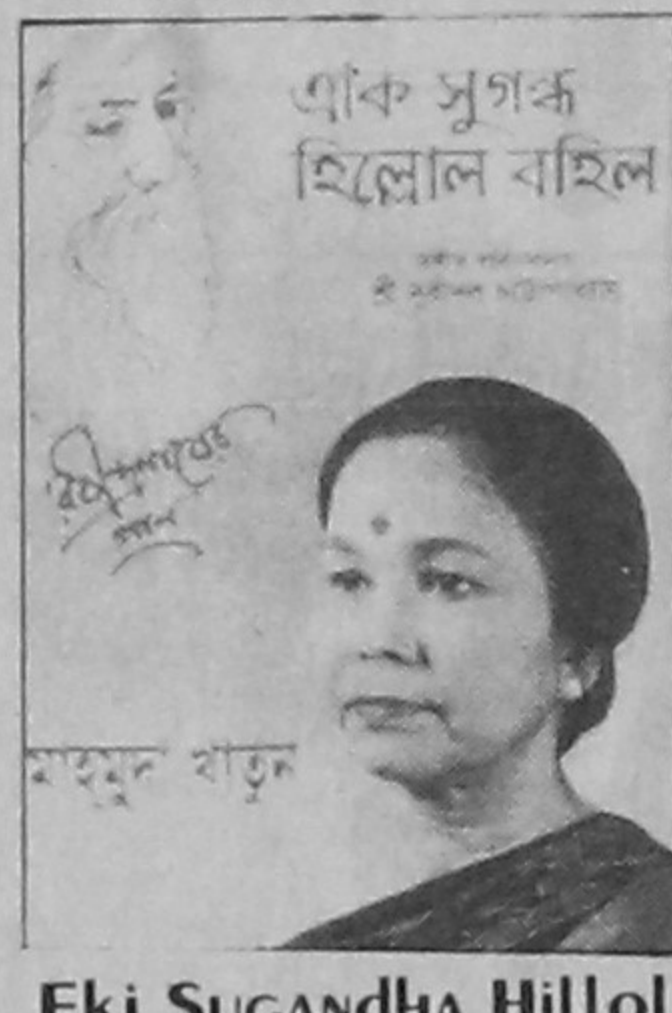 এ‌কি সুগন্ধ
হিল্লোল বহিল
শ্রী
রবীন্দ্রনাথের
গান
মাহমুদা খাতুন
Eki Sugandha Hillol